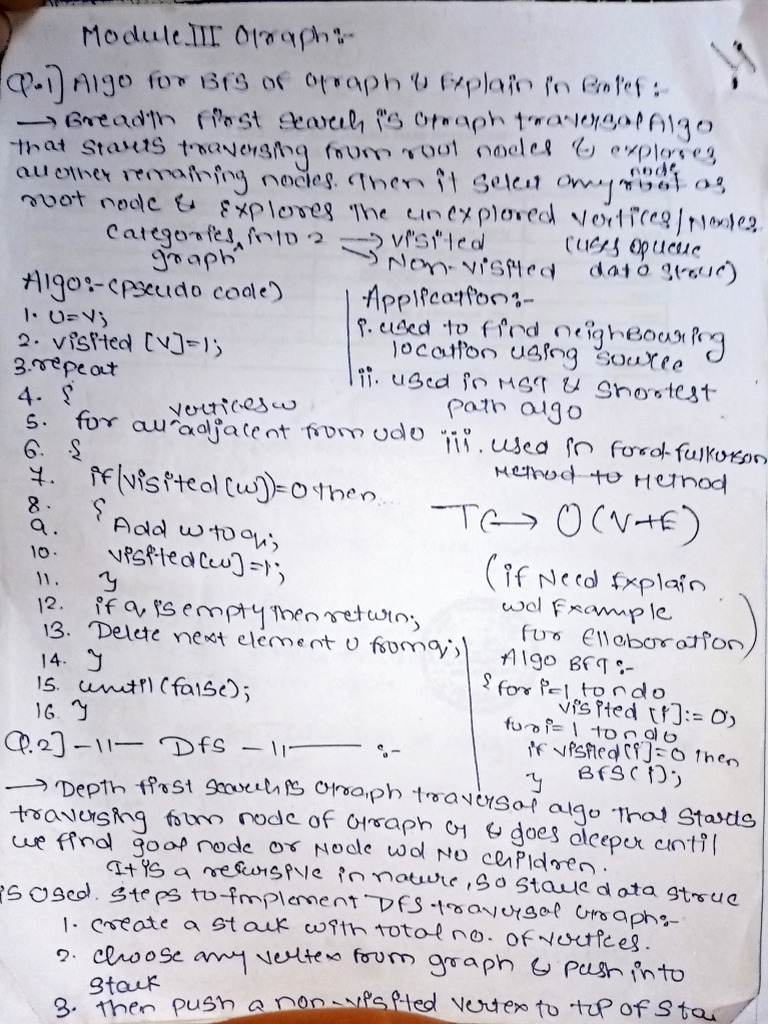 Module III Graph:-
Q.1] Algo for BFS of Graph & Explain in Brief:-
→ Breadth first search is Graph traversal Algo
that starts traversing from root nodes & explores
all other remaining nodes. Then it select any node as
root node & Explores The unexplored vertices/Nodes.
Categories graph into 2 → visited (uses queue
→ Non-visited data struc)
Algo:- (pseudo code)
1. U=V;
2. visited [V]=1;
3. repeat
4. {
5. for all vertices w adjacent from u do
6. {
7. if (visited [w])=0 then
8. {
9. Add w to q;
10. visited[w]=1;
11. }
12. if q is empty then return;
13. Delete next element u from q;
14. }
15. until (false);
16. }
Application:-
i. used to find neighbouring
location using source
ii. used in MST & Shortest
path algo
iii. used in ford-fulkerson
Method to Method
TC → O(V+E)
(if Need Explain
wd Example
for Ellaboration)
Algo BFT:-
{ for i=1 to n do
visited [i]:= 0;
for i=1 to n do
if visited[i]=0 then
} BFS(i);
Q.2] -11- DFS -11- :-
→ Depth first search is Graph traversal algo that starts
traversing from node of Graph G & goes deeper until
we find goal node or Node wd NO children.
It is a recursive in nature, so stack data struc
is Used. Steps to implement DFS traversal Graph:-
1. create a stack with total no. of vertices.
2. choose any vertex from graph & push into
stack
3. Then push a non-visited vertex to top of sta